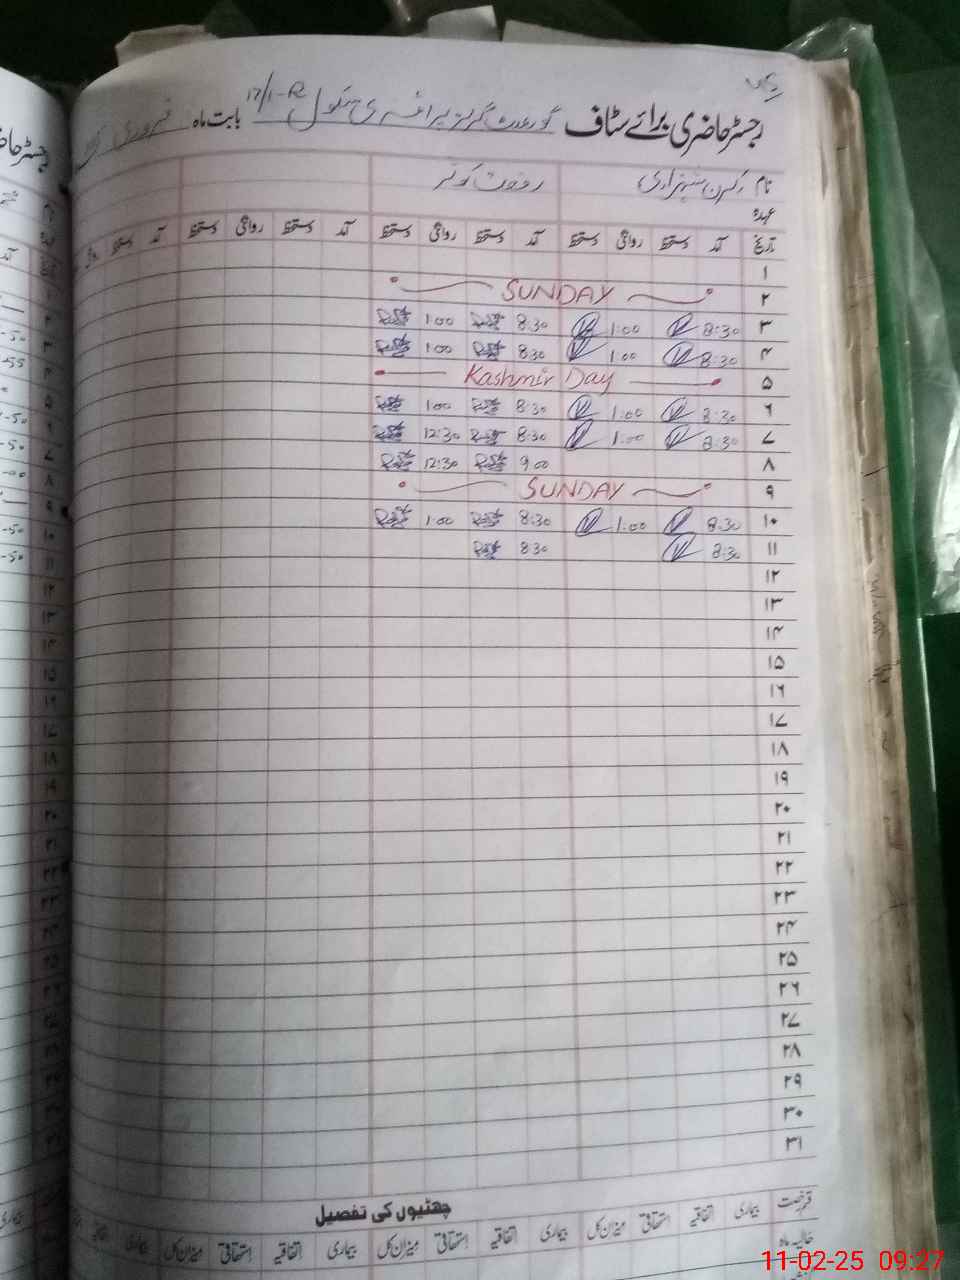 رجسٹر حاضری برائے سٹاف گورنمنٹ گرلز پرائمری سکول 17/1-R بابت ماہ فروری
نام کرن شہزادی رفعت کوثر
عہدہ
تاریخ آمد دستخط روانگی دستخط آمد دستخط روانگی دستخط آمد دستخط روانگی دستخط آمد دستخط
۱
۲ SUNDAY
۳ 8:30 1:00 8:30 1:00
۴ 8:30 1:00 8:30 1:00
۵ Kashmir Day
۶ 8:30 1:00 8:30 1:00
۷ 8:30 1:00 8:30 12:30
۸ 9:00 12:30
۹ SUNDAY
۱۰ 8:30 1:00 8:30 1:00
۱۱ 8:30 8:30
۱۲
۱۳
۱۴
۱۵
۱۶
۱۷
۱۸
۱۹
۲۰
۲۱
۲۲
۲۳
۲۴
۲۵
۲۶
۲۷
۲۸
۲۹
۳۰
۳۱
چھٹیوں کی تفصیل
قسم رخصت بیماری اتفاقیہ استحقاقی میزان کل بیماری اتفاقیہ استحقاقی میزان کل بیماری اتفاقیہ استحقاقی میزان کل بیماری اتفاقیہ
حالیہ ماہ
11-02-25 09:27